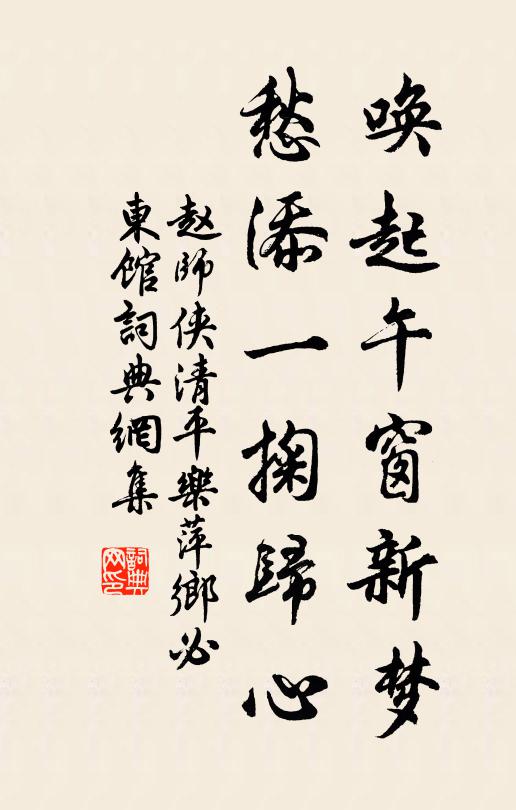 唤起午窗新梦
愁添一掬歸心
赵師侠清平樂萍鄉必
東館詞典網集
詞典
网印